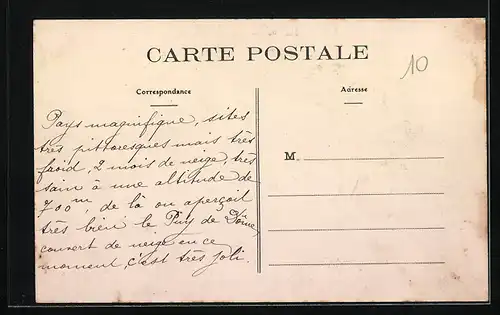 CARTE POSTALE
10
Correspondance
Adresse
Pays magnifique, sites
très pittoresques mais très
froid, 2 mois de neige très
sain à une altitude de
700m, de là on aperçoit
très bien le Puy de Dôme,
couvert de neige en ce
moment, c'est très joli.
M.